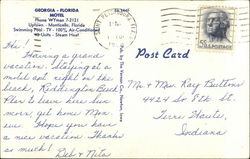 GEORGIA - FLORIDA
MOTEL
Phone WYman 7-2121
Uptown - Monticello, Florida
Swimming Pool - TV - 100% Air-Conditioned
40 Units - Steam Heat
Post Card
Hi!
Having a grand
vacation. Staying at a
motel apt right on the
beach, Reddington Beach.
Plan to leave here Sun
morn, get home Mon
eve. Hope you have
a nice vacation. Thanks
so much!
Deb + Nita
Mr. & Mrs. Ray Buttons
4424 So 8th St.
Terre Haute,
Indiana